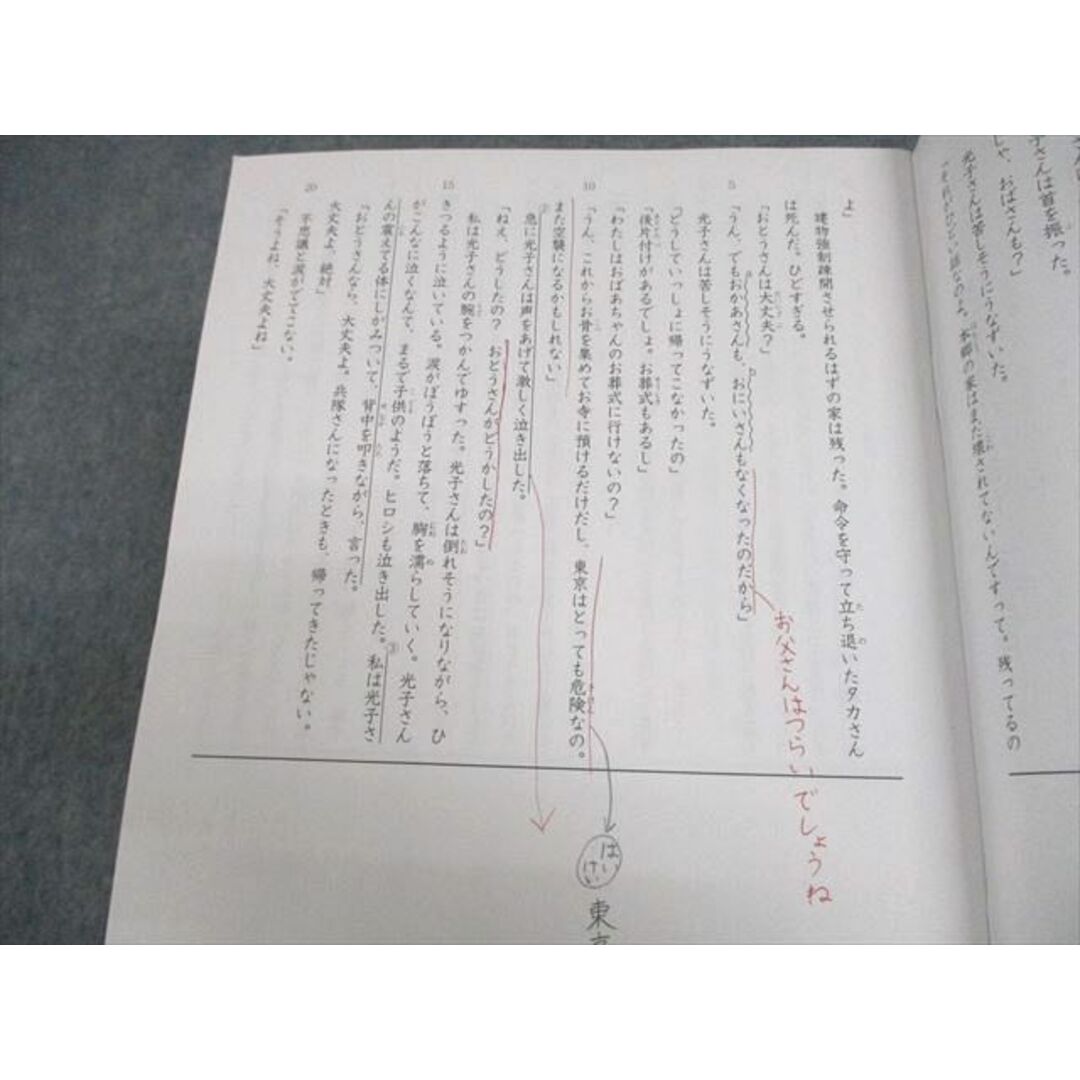 子さんは首を振った。
しゃ、おばさんも?」
光子さんは苦しそうにうなずいた。
本郷の家はまだ壊されてないんですって。残ってるの
よ」
建物強制疎開させられるはずの家は残った。命令を守って立ち退いたタカさん
は死んだ。ひどすぎる。
「おとうさんは大丈夫?」
「うん、でもおかあさんも、おにいさんもなくなったのだから」
光子さんは苦しそうにうなずいた。
「どうしていっしょに帰ってこなかったの」
「後片付けがあるでしょ。お葬式もあるし」
「わたしはおばあちゃんのお葬式に行けないの?」
「うん、これからお骨を集めてお寺に預けるだけだし、東京はとっても危険なの。
また空襲になるかもしれない」
急に光子さんは声をあげて激しく泣き出した。
「ねえ、どうしたの? おとうさんがどうかしたの?」
私は光子さんの腕をつかんでゆすった。光子さんは倒れそうになりながら、ひ
きつるように泣いている。涙がぼうぼうと落ちて、胸を濡らしていく。光子さん
がこんなに泣くなんて、まるで子供のようだ。ヒロシも泣き出した。私は光子さ
んの震えてる体にしがみついて、背中を叩きながら、言った。
「おとうさんなら、大丈夫よ。兵隊さんになったときも、帰ってきたじゃない。
大丈夫よ、絶対」
不思議と涙がでてこない。
「そうよね、大丈夫よね」
5
10
15
20
②
③
お父さんはつらいでしょうね
はいけい
東京